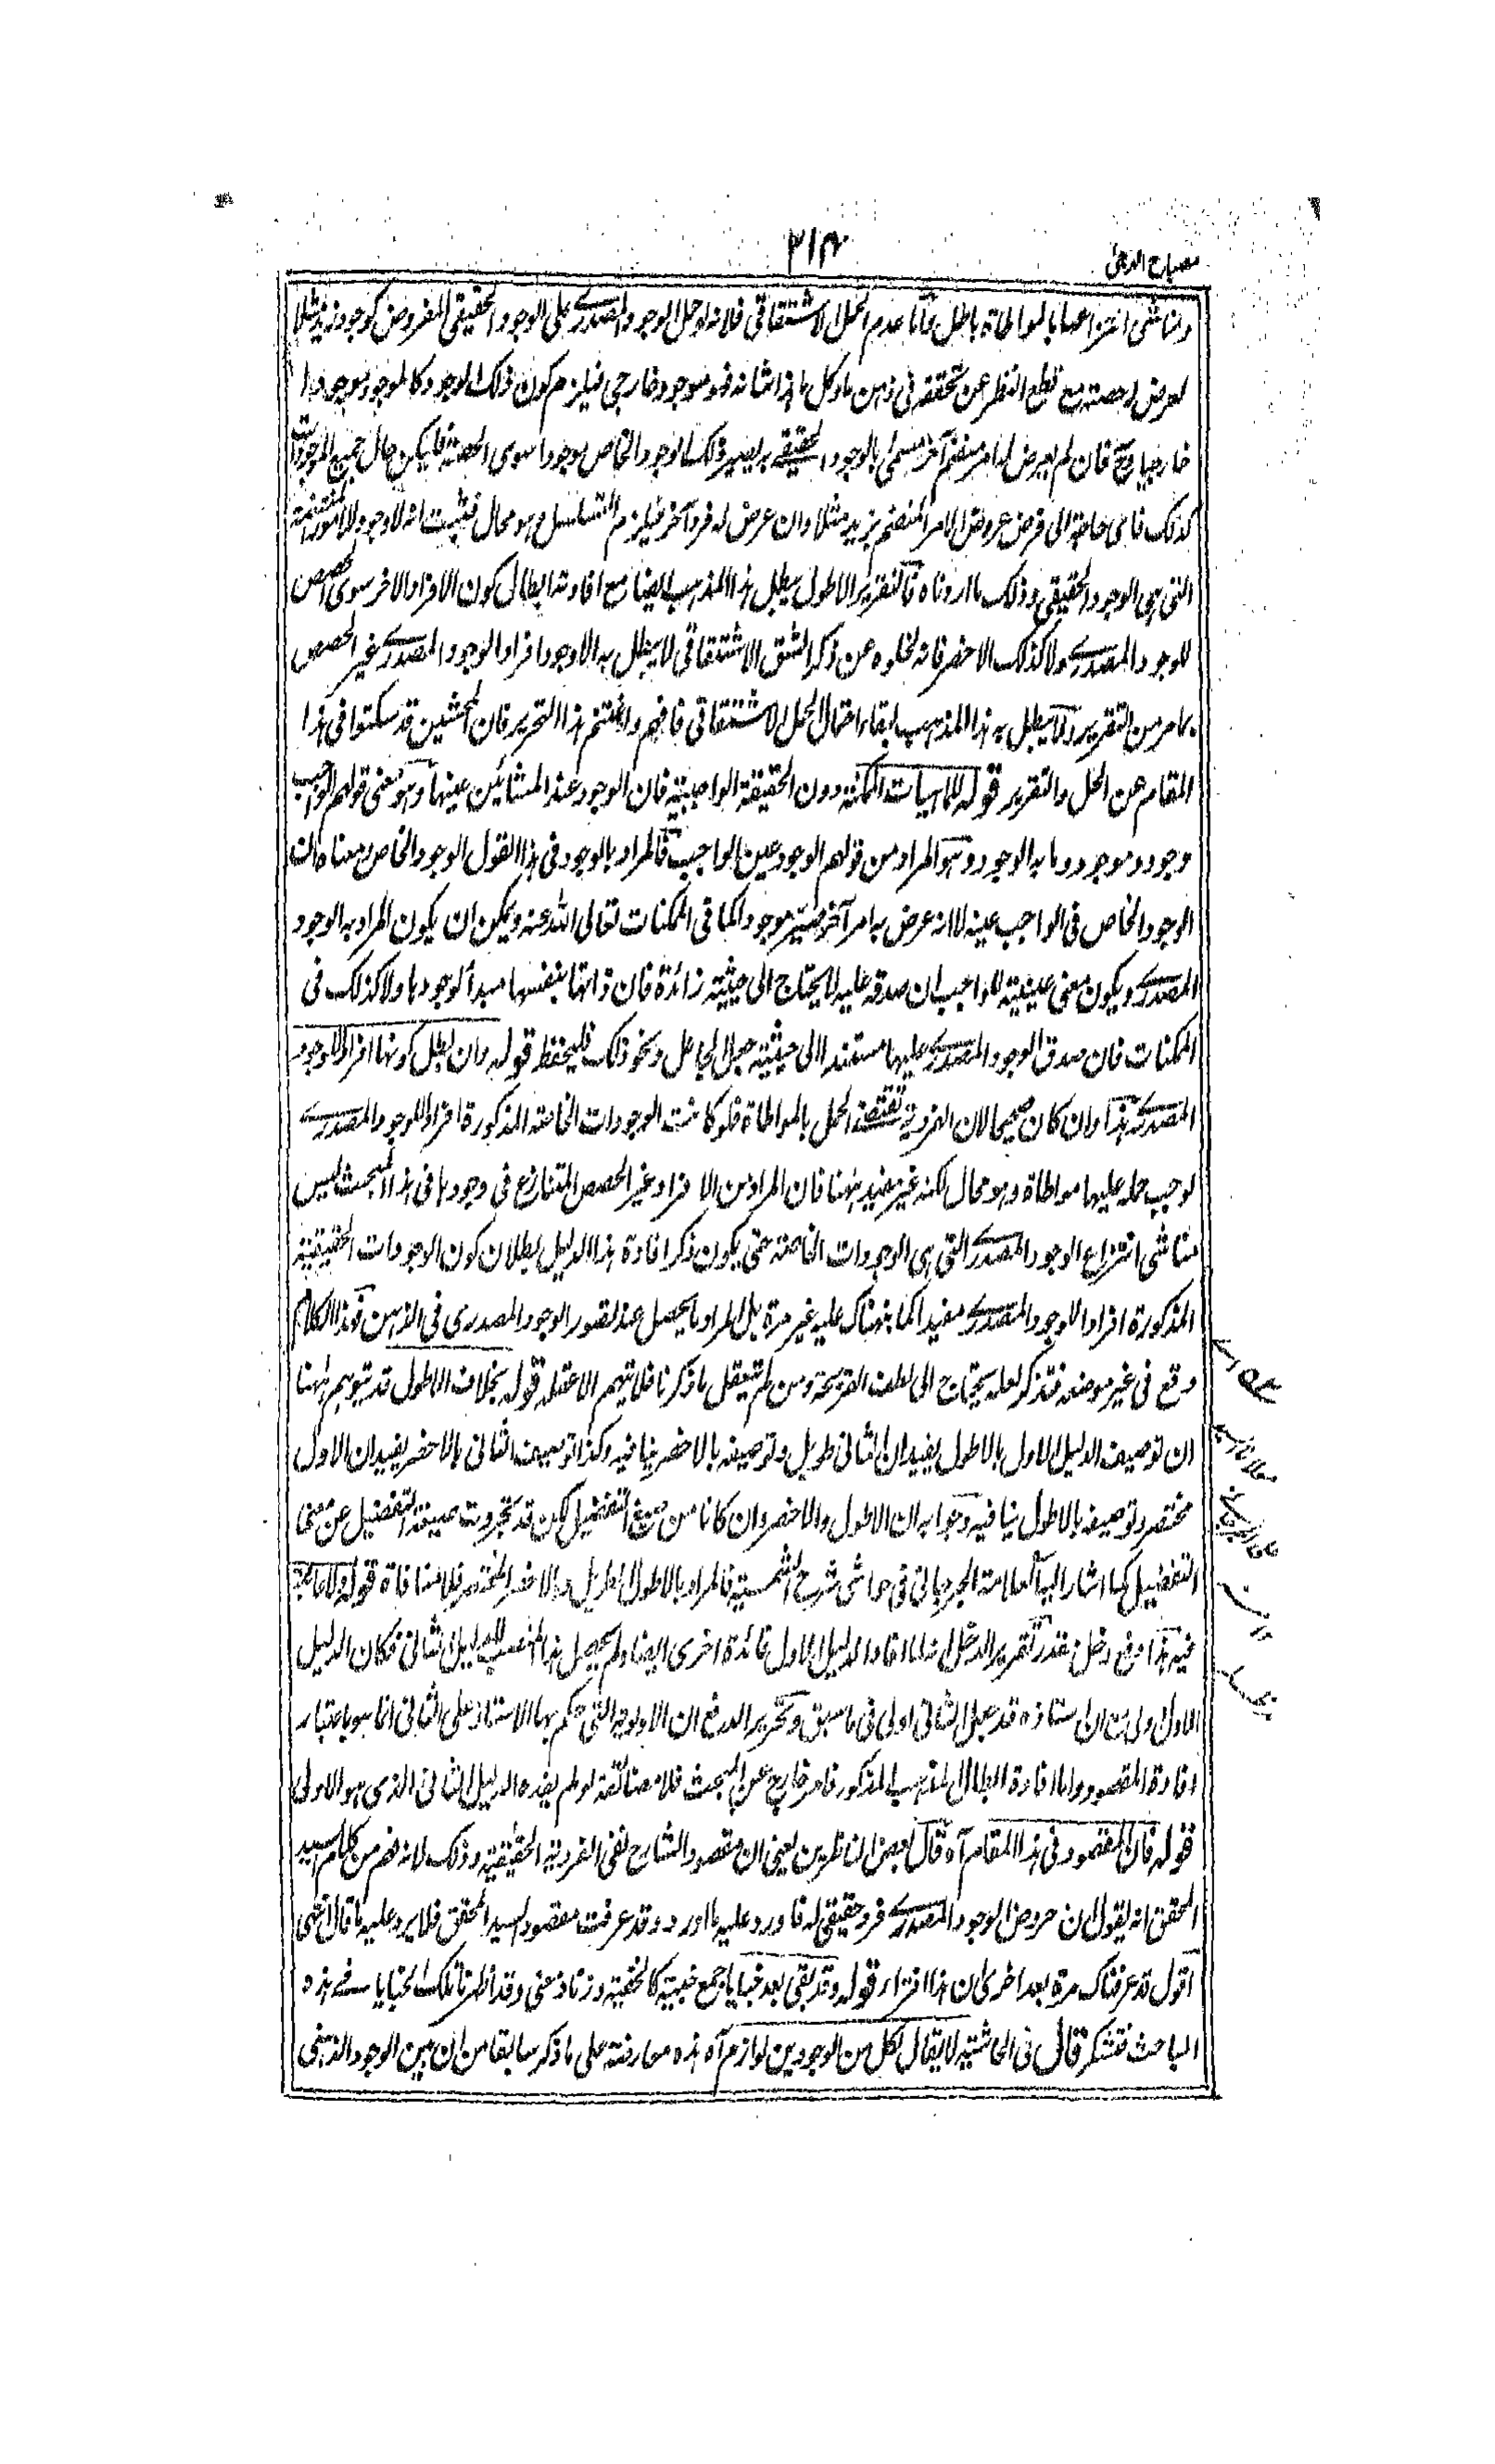 مصباح الدجى
٣١٤
ومناشى انتزاعها بالمواطاة باطل وأما عدم الحمل الاشتقاقي فلانه لو حمل الوجود المصدري على الوجود الحقيقي المفروض كوجود زيد مثلا
لعرض له حصته مع قطع النظر عن تحققه في ذهن ما وكل ما هذا شانه فهو موجود خارجي فيلزم كون ذلك الوجود كالموجود موجودا
خارجيا وح فان لم يعرض له امر منضم آخر مسمى بالوجود الحقيقي به يصير ذلك الوجود الخاص موجودا سوى الحصة فليكن حال جميع الموجودات
كذلك فاى حاجة الى فرض عروض الامر المنضم بزيد مثلا وان عرض له فرد آخر فيلزم التسلسل وهو محال فثبت انه لا وجود للامور المنضمة
التي هي الوجود الحقيقي وذلك ما اردناه فالتقرير الاطول يبطل هذا المذهب ايضا مع افادته ابطال كون الافراد الاخر سوى الحصص
للوجود المصدري ولا كذلك الاخصر فانه لخلوه عن ذكر الشق الاشتقاقي لا يبطل به الا وجود افراد الوجود المصدري غير الحصص
بما مر من التقرير ولا يبطل به هذا المذهب لبقاء احتمال الحمل الاشتقاقي فافهم واغتنم هذا التحرير فان المحشين قد سكتوا في هذا
المقام عن الحل والتقرير قوله للماهيات الممكنة دون الحقيقة الواجبية فان الوجود عند المشائين عينها وهو معنى قولهم الواجب
وجود وموجود وما به الوجود وهو المراد من قولهم الوجود عين الواجب فالمراد بالوجود في هذا القول الوجود الخاص ومعناه ان
الوجود الخاص في الواجب عينه لا انه عرض به امر آخر فيصير موجودا كما في الممكنات تعالى الله عنه ويمكن ان يكون المراد به الوجود
المصدري ويكون معنى عينيته للواجب ان صدقه عليه لا يحتاج الى حيثية زائدة فان ذاتها بنفسها مبدأ لوجودها ولا كذلك في
الممكنات فان صدق الوجود المصدري عليها مستند الى حيثية جعل الجاعل ونحو ذلك فليحفظ قوله وان بطل كونها افرادا للوجود
المصدري هذا وان كان صحيحا لان الفردية تقتضي الحمل بالمواطاة فلو كانت الوجودات الخاصة المذكورة افرادا للوجود المصدري
لوجب حمله عليها مواطاة وهو محال لكنه غير مفيد ههنا فان المراد من الافراد غير الحصص المتنازع في وجودها في هذا المبحث ليس
مناشى انتزاع الوجود المصدري التي هي الوجودات الخاصة حتى يكون ذكر افادة هذا الدليل بطلان كون الوجودات الحقيقية
المذكورة افرادا للوجود المصدري مفيدا كما نبهناك عليه غير مرة بل المراد ما يحصل عند تصور الوجود المصدري في الذهن فهذا الكلام
وقع في غير موضعه فتذكر لعله يحتاج الى لطف القريحة ومن لم يتعقل ما ذكرنا فلا يتهم الا عقله قوله بخلاف الاطول قد يتوهم ههنا
ان توصيف الدليل الاول بالاطول يفيد ان الثاني طويل وتوصيفه بالاخصر ينافيه وكذا توصيف الثاني بالاخصر يفيد ان الاول
مختصر وتوصيفه بالاطول ينافيه وجوابه ان الاطول والاخصر وان كانا من صيغ التفضيل لكن قد تجردت صيغة التفضيل عن معنى
التفضيل كما اشار اليه العلامة الجرجاني في حواشى شرح الشمسية فالمراد بالاطول الطويل وبالاخصر المختصر فلا منافاة قوله ولا مضائقة
فيه هذا دفع دخل مقدر تقرير الدخل انه لما افاد الدليل الاول فائدة اخرى ايضا ولم يحصل هذا المنصب للدليل الثاني فكان الدليل
الاول اولى مع ان استاذه قد جعل الثاني اولى في ما سبق وتحرير الدفع ان الاولوية التي حكم بها الاستاذ على الثاني انما هو باعتبار
افادة المقصود واما افادة ابطال المذهب المذكور فامر خارج عن المبحث فلا مضائقة لو لم يفده الدليل الثاني الذي هو الاولى
قوله فان المقصود في هذا المقام آه قال بعض الناظرين يعني ان مقصود الشارح نفى الفردية الحقيقية وذلك لانه فهم من كلام السيد
المحقق انه يقول ان معروض الوجود المصدري فرد حقيقي له فاورد عليه ما اورد وقد عرفت مقصود السيد المحقق فلا يرد عليه ما قال انتهى
اقول قد عرفناك مرة بعد اخرى ان هذا افتراء قوله وقد بقى بعد خبايا جمع خبية كالخفية وزنا ومعنى وقد أظهرنا تلك الخبايا في هذه
المباحث فتشكر قال في الحاشية لا يقال لكل من الوجودين لوازم آه هذه معارضة على ما ذكر سابقا من ان بين الوجود الذهني